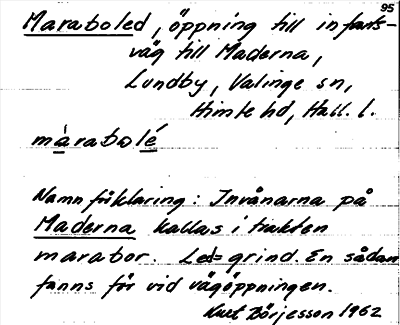 95
Maraboled, öppning till infarts-
väg till Maderna,
Lundby, Valinge sn,
Himle hd, Hall. l.
màrabolé
Namnförklaring: Invånarna på
Maderna kallas i trakten
marabor. Led = grind. En sådan
fanns för vid vägöppningen.
Kurt Börjesson 1962